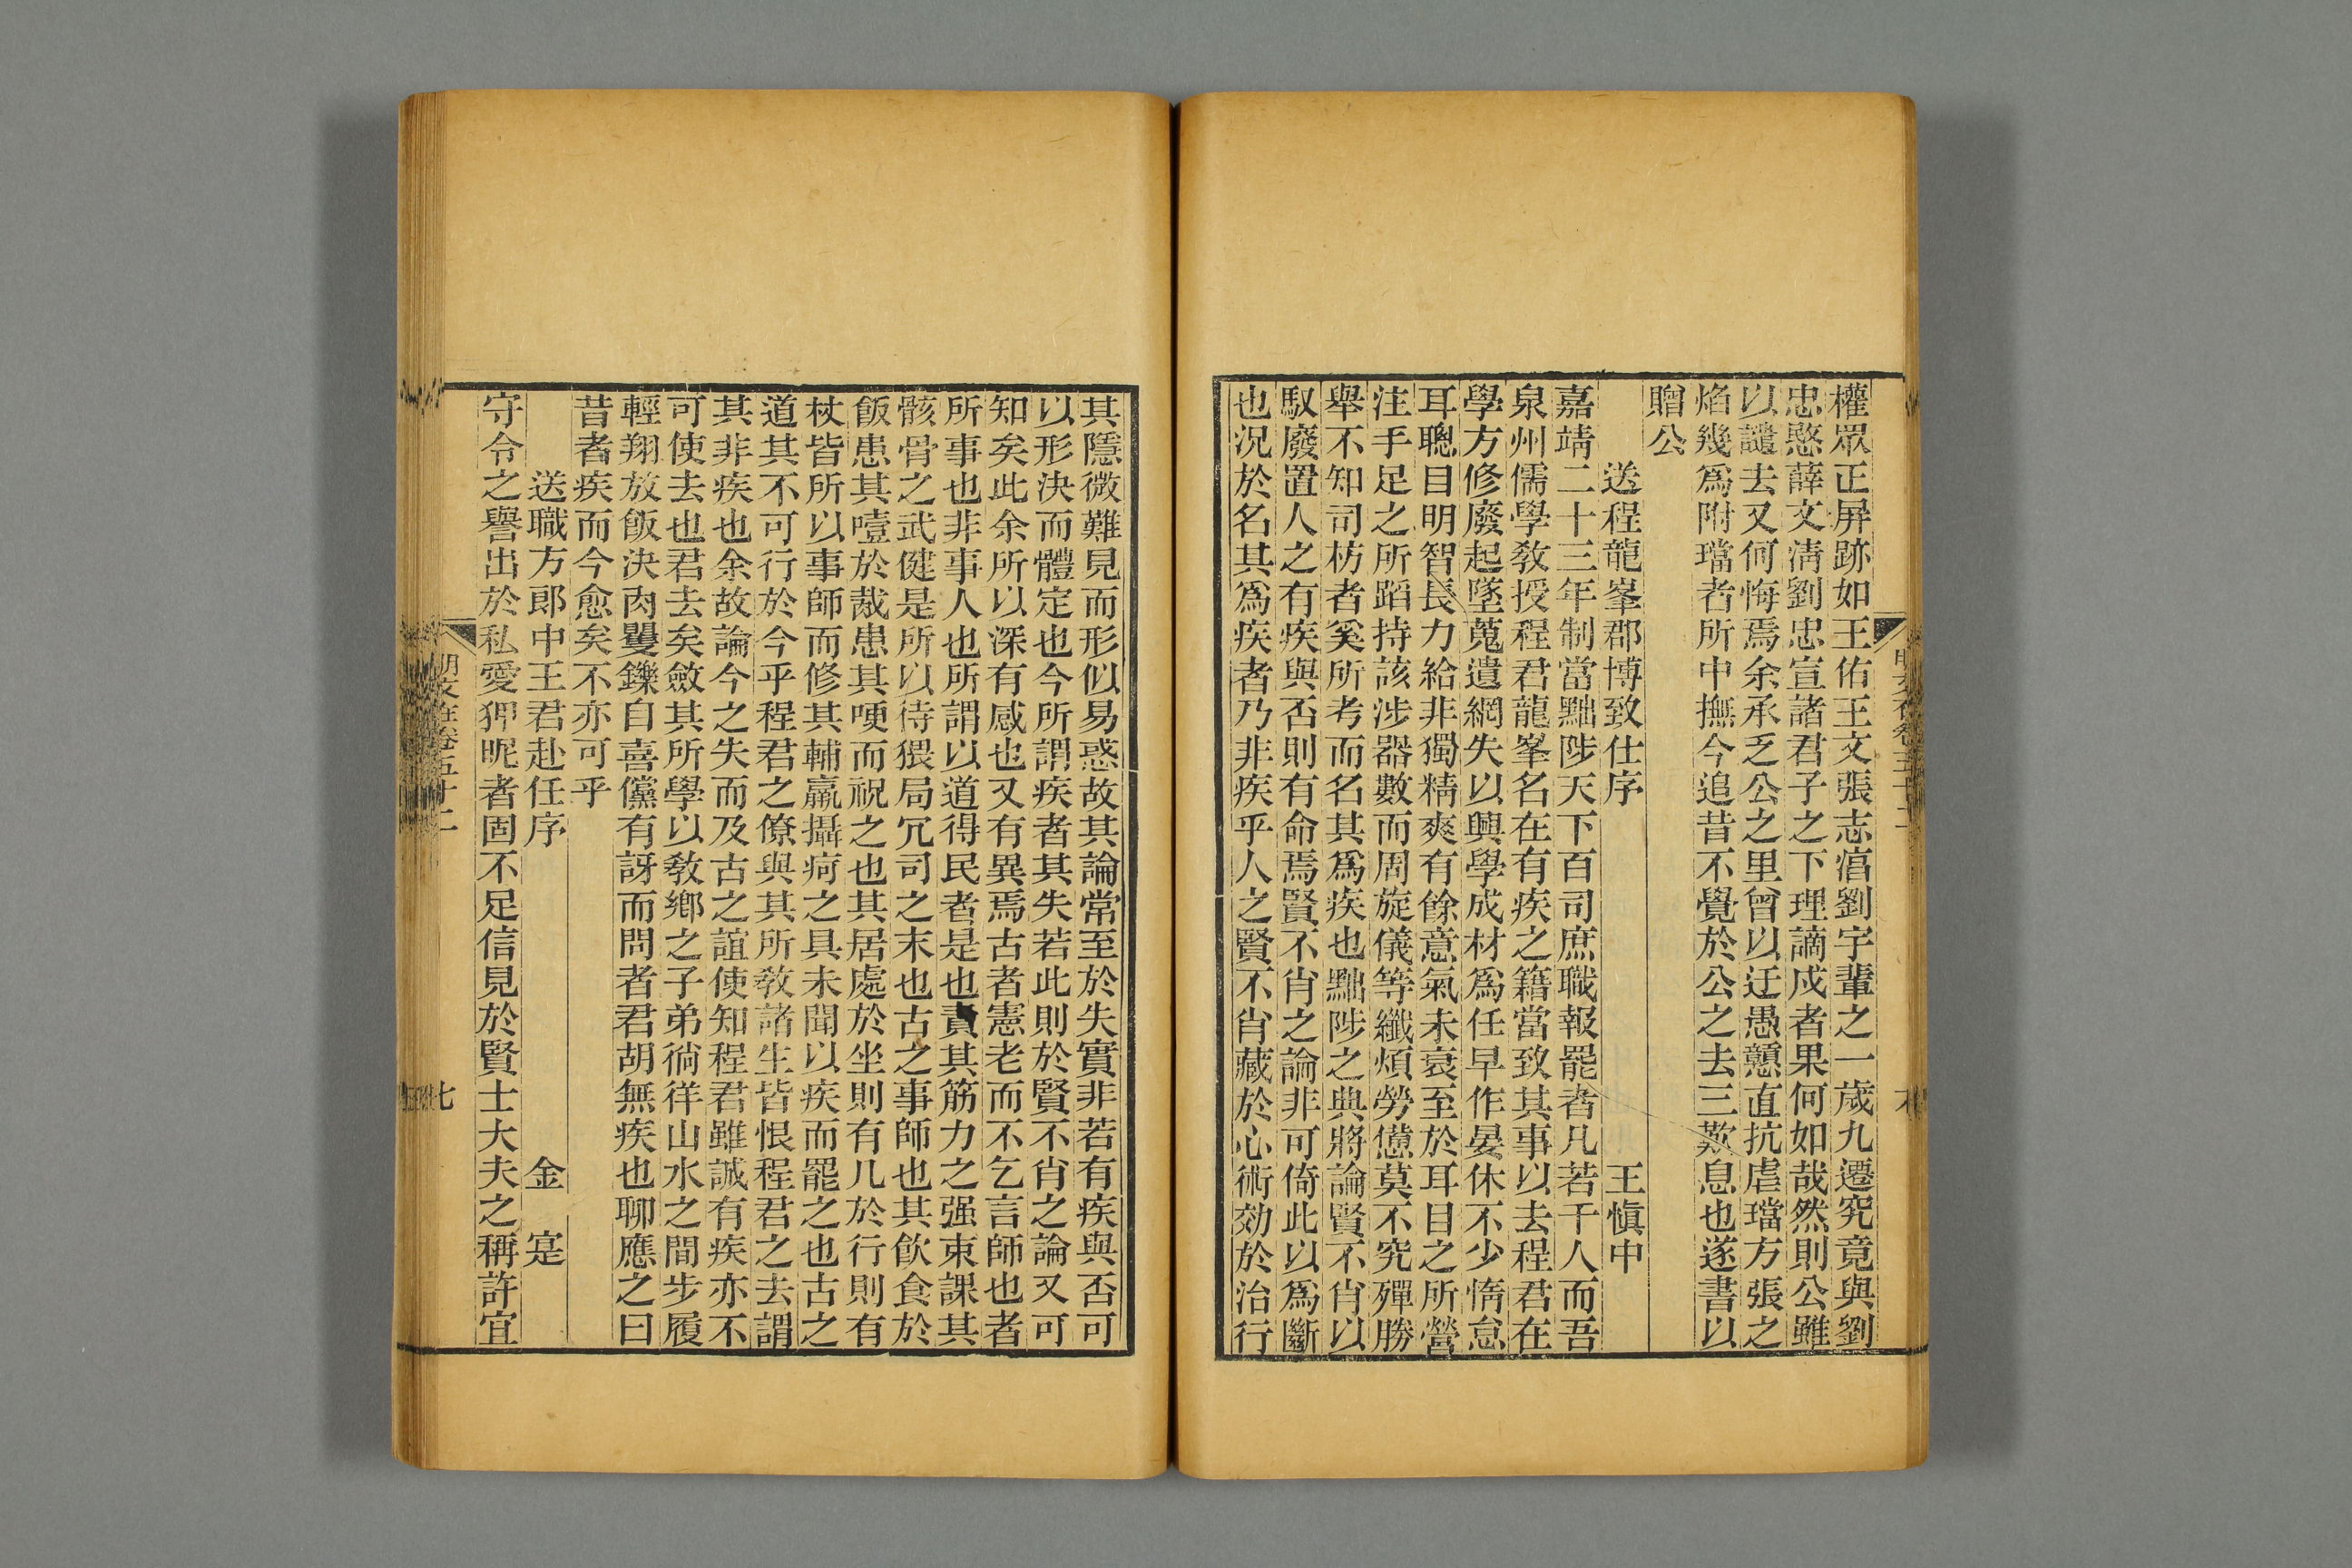 權眾正屏跡如王佑王文張志淐劉宇輩之一歲九遷究竟與劉
忠愍薛文淸劉忠宣諸君子之下理謫戍者果何如哉然則公雖
以譴去又何悔焉余承乏公之里曾以迂愚戇直抗虐璫方張之
焰幾爲附璫者所中撫今追昔不覺於公之去三歎息也遂書以
贈公
送程龍峯郡博致仕序 王愼中
嘉靖二十三年制當黜陟天下百司庶職報罷者凡若干人而吾
泉州儒學敎授程君龍峯名在有疾之籍當致其事以去程君在
學方修廢起墜蒐遺網失以興學成材爲任早作晏休不少惰怠
耳聰目明智長力給非獨精爽有餘意氣未衰至於耳目之所營
注手足之所蹈持該涉器數而周旋儀等纖煩勞憊莫不究殫勝
舉不知司枋者奚所考而名其爲疾也黜陟之典將論賢不肖以
馭廢置人之有疾與否則有命焉賢不肖之論非可倚此以爲斷
也况於名其爲疾者乃非疾乎人之賢不肖藏於心術効於治行
其隱微難見而形似易惑故其論常至於失實非若有疾與否可
以形決而體定也今所謂疾者其失若此則於賢不肖之論又可
知矣此余所以深有感也又有異焉古者憲老而不乞言師也者
所事也非事人也所謂以道得民者是也責其筋力之强束課其
骸骨之武健是所以待猥局冗司之末也古之事師也其飮食於
飯患其噎於胾患其哽而祝之也其居處於坐則有几於行則有
杖皆所以事師而修其輔羸攝痾之具未聞以疾而罷之也古之
道其不可行於今乎程君之僚與其所敎諸生皆恨程君之去謂
其非疾也余故論今之失而及古之誼使知程君雖誠有疾亦不
可使去也君去矣斂其所學以敎鄉之子弟徜徉山水之間步履
輕翔放飯決肉矍鑠自喜儻有訝而問者君胡無疾也聊應之曰
昔者疾而今愈矣不亦可乎
送職方郎中王君赴任序 金寔
守令之譽出於私愛狎昵者固不足信見於賢士大夫之稱許宜
明文在卷五十二
七